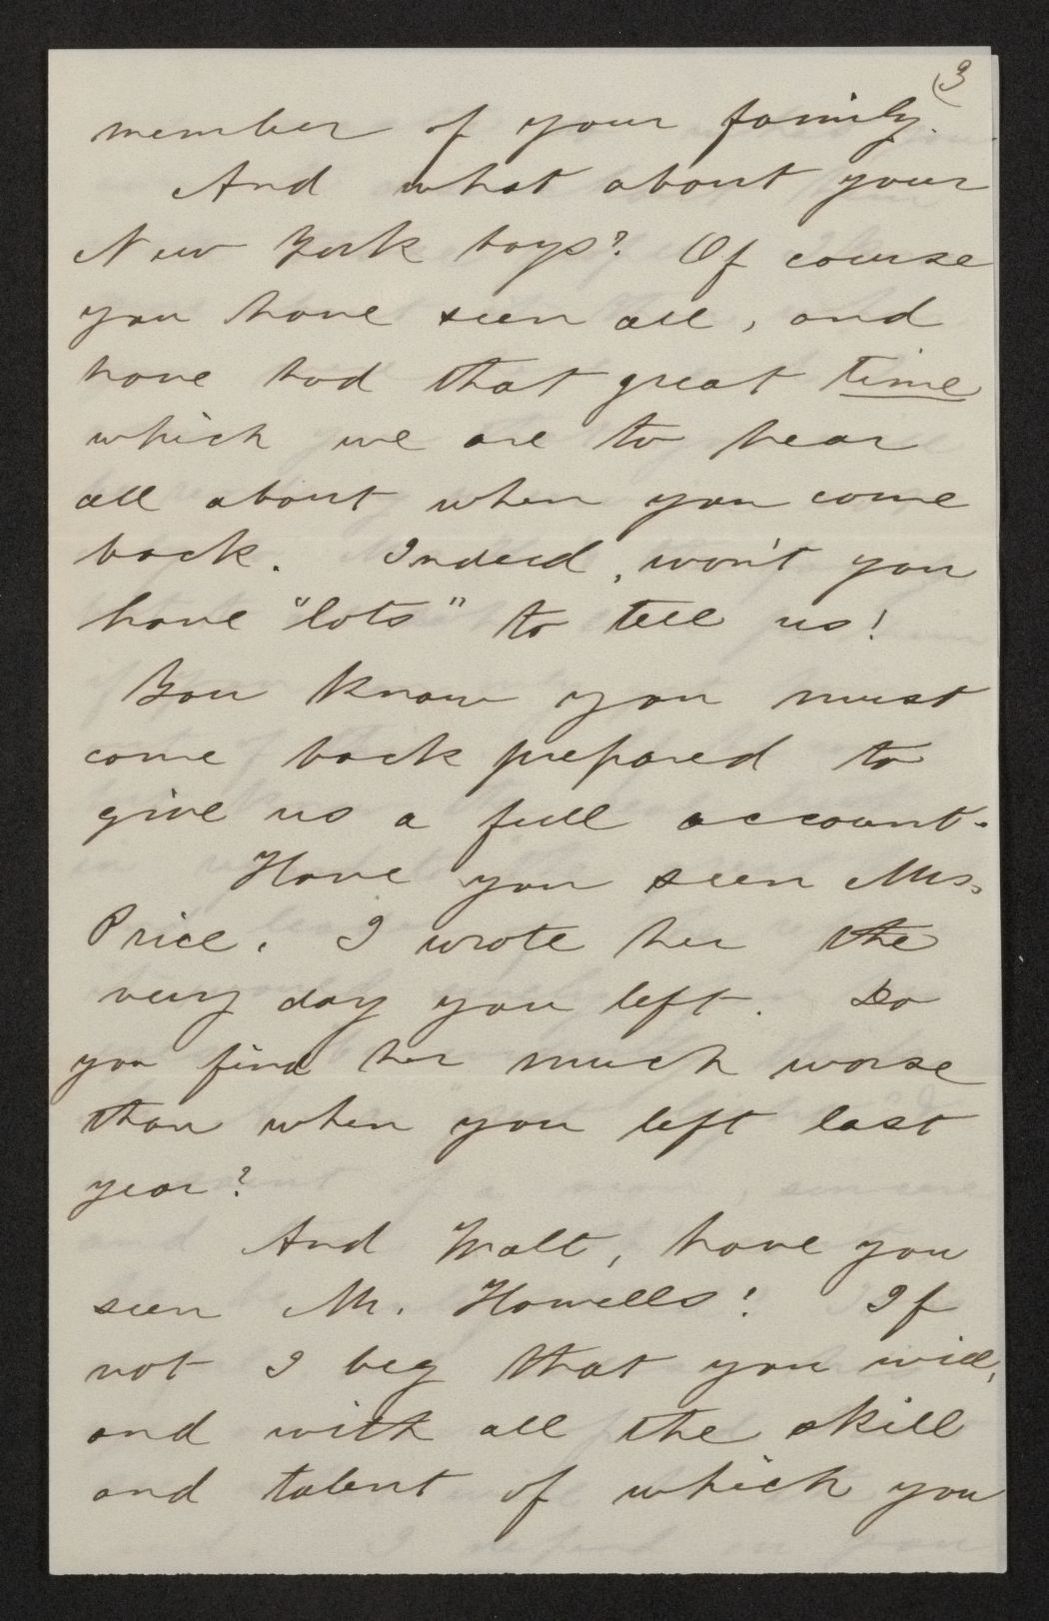 (3
member of your family.
And what about your
New York boys? Of course
you have seen all, and
have had that great time
which we are to hear
all about when you come
back. Indeed, won't you
have "lots" to tell us!
You know you must
come back prepared to
give us a full account.
Have you seen Mrs.
Price. I wrote her the
very day you left. Do
you find her much worse
than when you left last
year?
And Walt, have you
seen Mr. Howells! If
not I beg that you will,
and with all the skill
and talent of which you